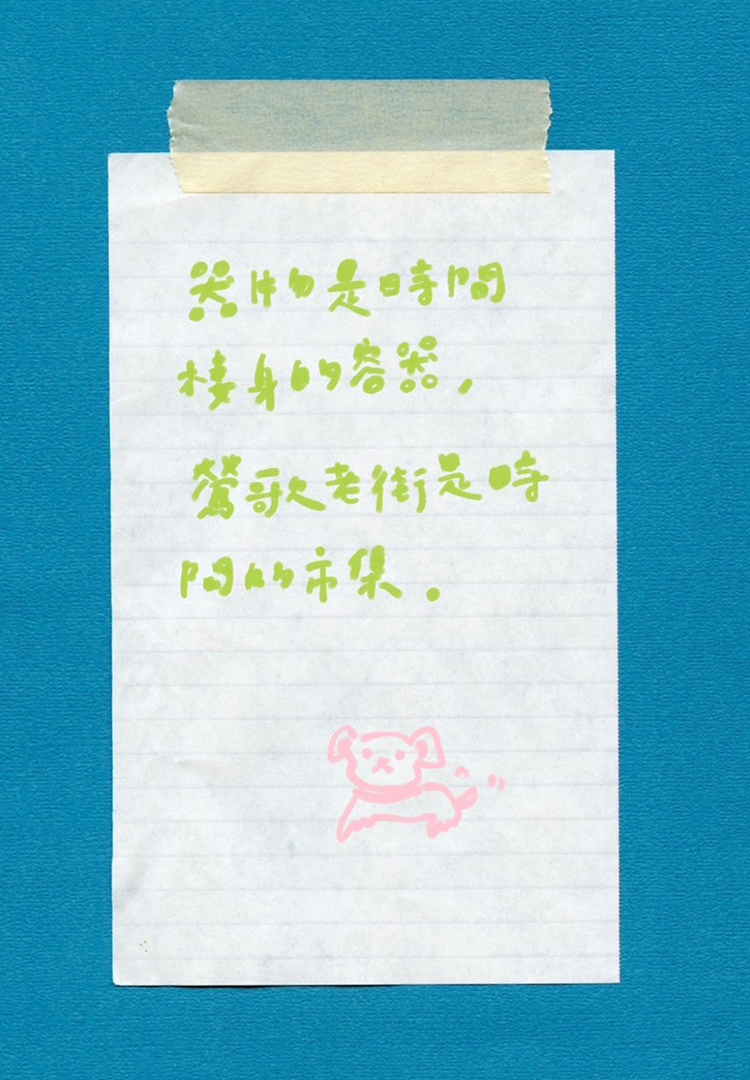 器物是時間
棲身的容器，
鶯歌老街是時
間的市集。